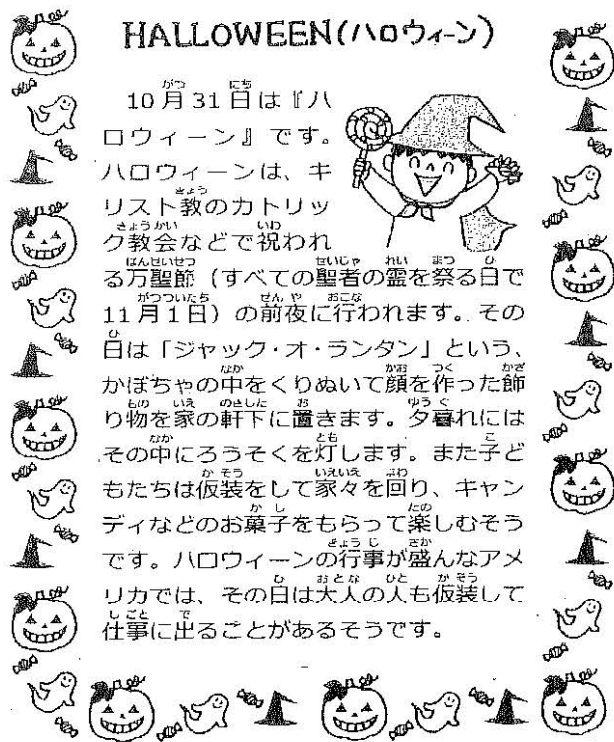 HALLOWEEN(ハロウィーン)
10月31日は『ハ
ロウィーン』です。
ハロウィーンは、キ
リスト教のカトリッ
ク教会などで祝われ
る万聖節（すべての聖者の霊を祭る日で
11月1日）の前夜に行われます。その
日は「ジャック・オ・ランタン」という、
かぼちゃの中をくりぬいて顔を作った飾
り物を家の軒下に置きます。夕暮れには
その中にろうそくを灯します。また子ど
もたちは仮装をして家々を回り、キャン
ディなどのお菓子をもらって楽しむそう
です。ハロウィーンの行事が盛んなアメ
リカでは、その日は大人の人も仮装して
仕事に出ることがあるそうです。